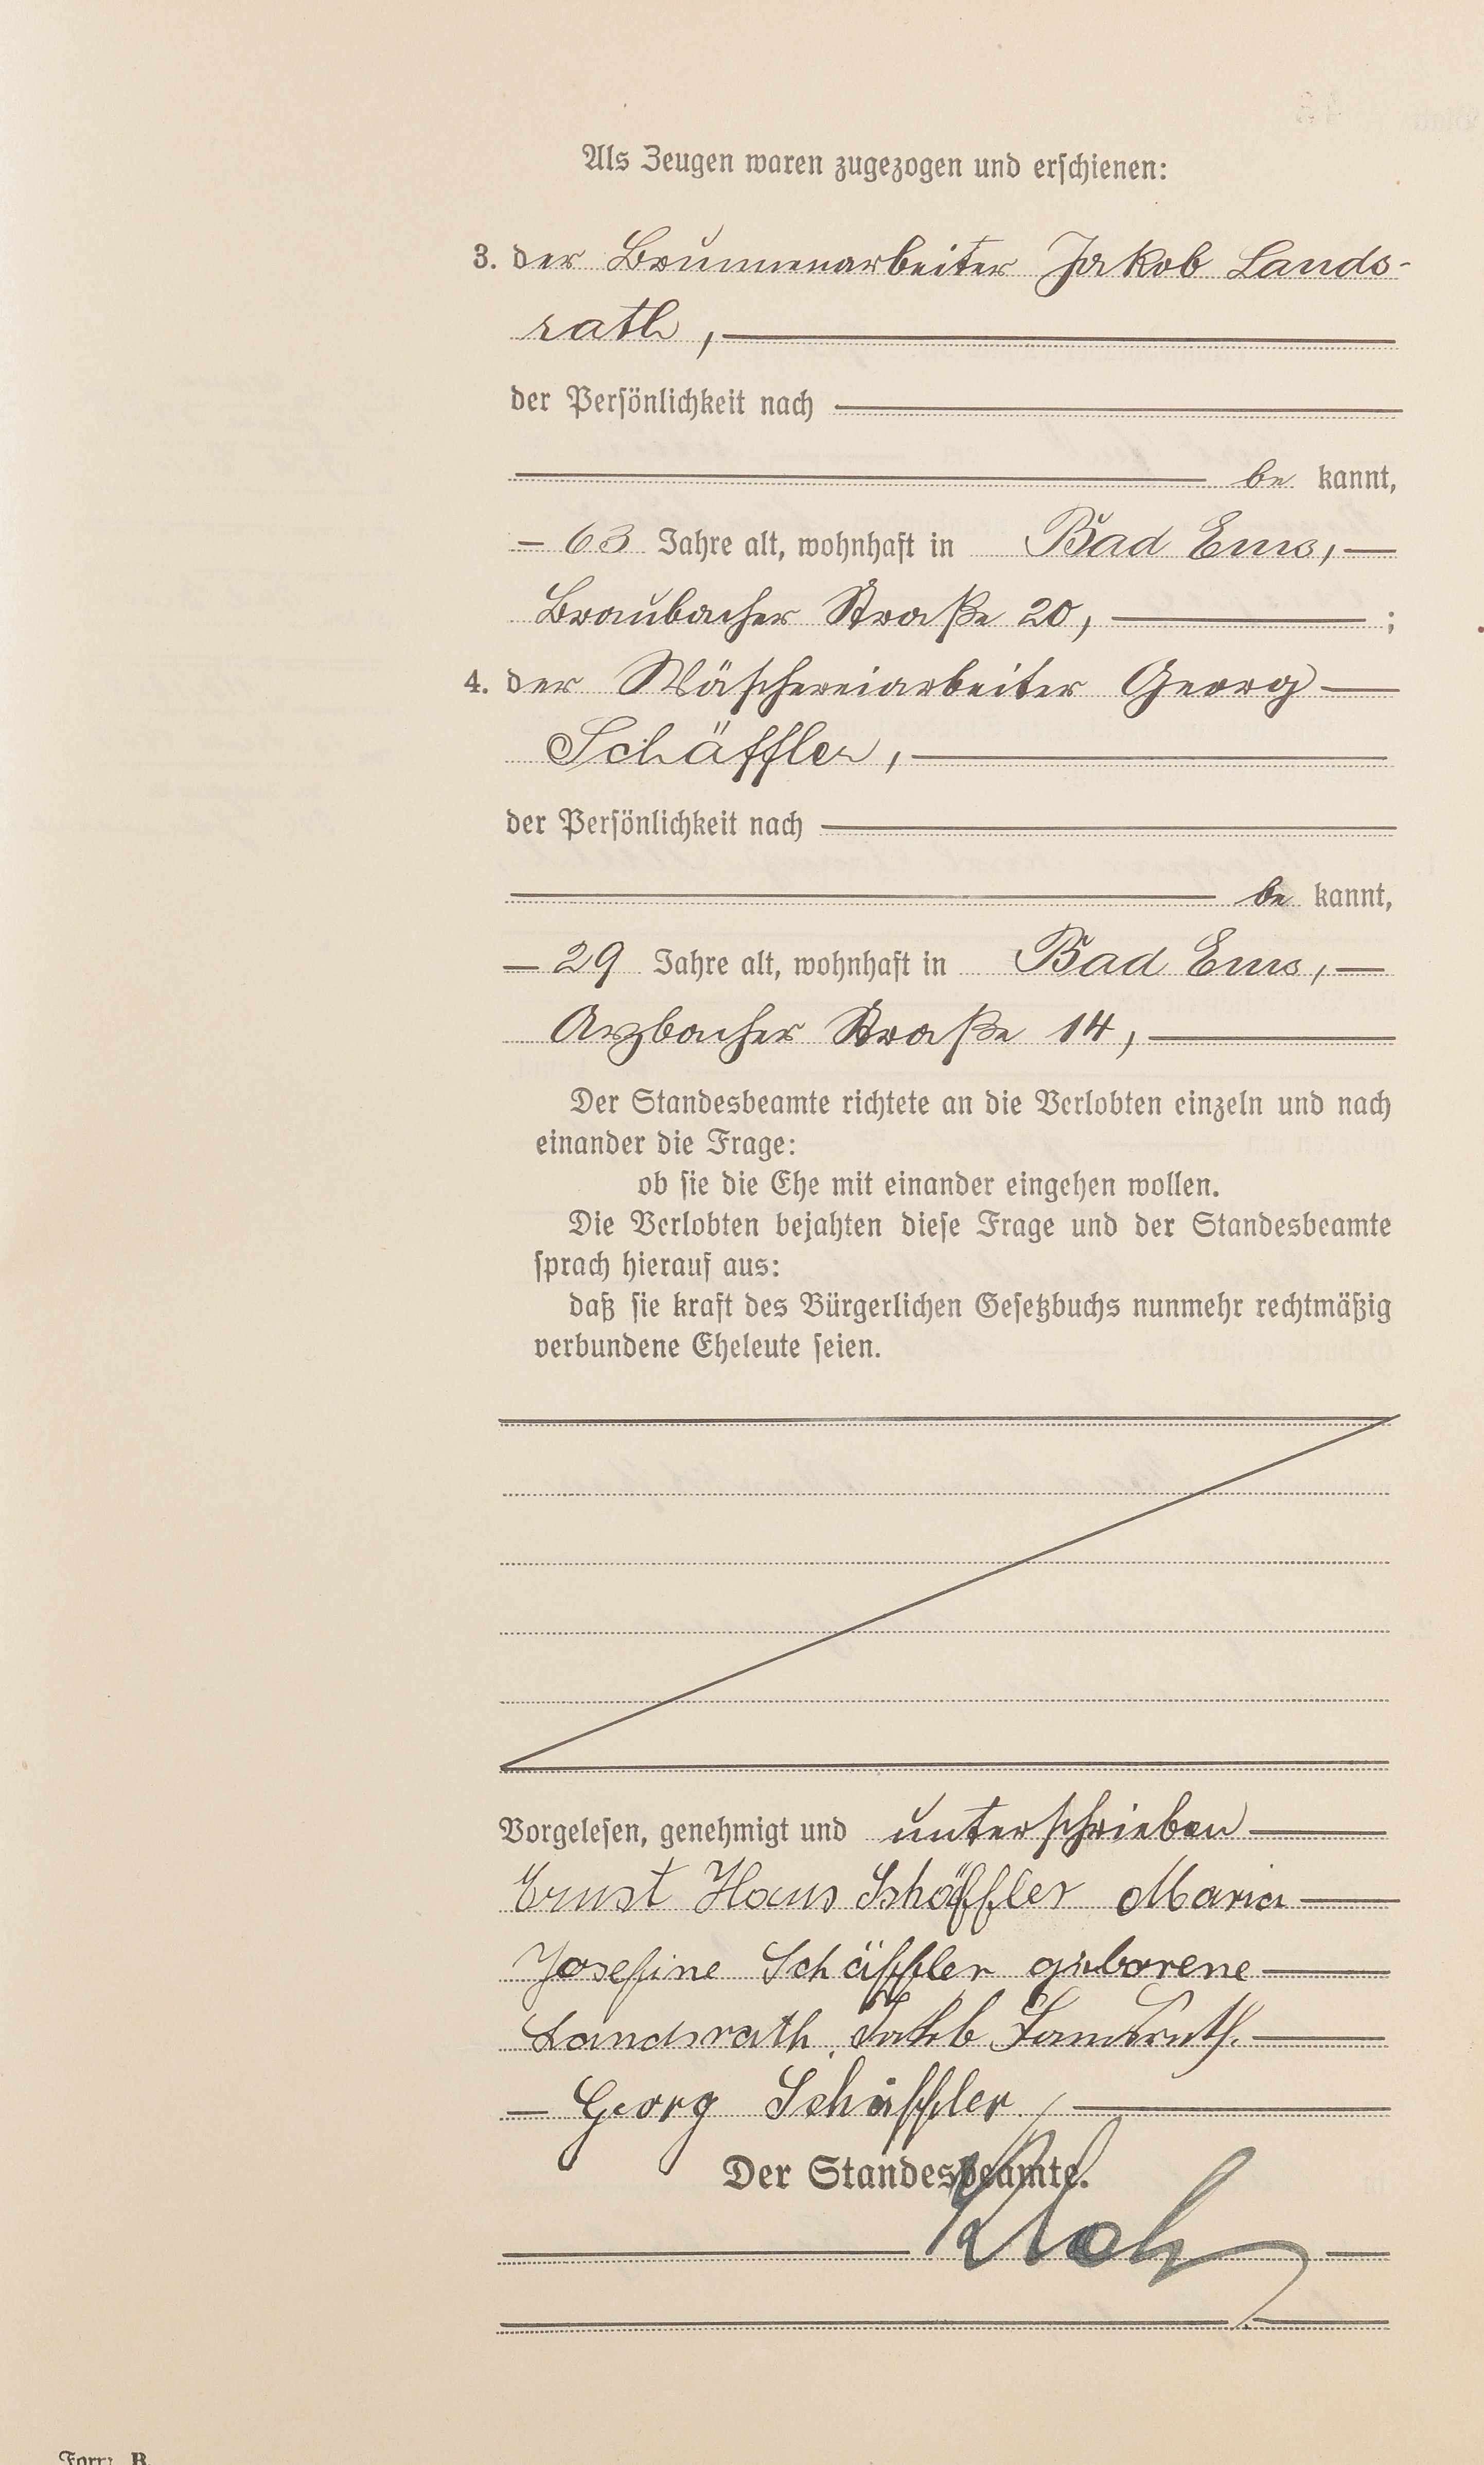 Als Zeugen waren zugezogen und erschienen:
3. der Brunnenarbeiter Jakob Lands-
rath,
der Persönlichkeit nach
be kannt,
63 Jahre alt, wohnhaft in Bad Ems,
Braubacher Straße 20, ;
4. der Wäschereiarbeiter Georg
Schäffler,
der Persönlichkeit nach
be kannt,
29 Jahre alt, wohnhaft in Bad Ems,
Arzbacher Straße 14,
Der Standesbeamte richtete an die Verlobten einzeln und nach
einander die Frage:
ob sie die Ehe mit einander eingehen wollen.
Die Verlobten bejahten diese Frage und der Standesbeamte
sprach hierauf aus:
daß sie kraft des Bürgerlichen Gesetzbuchs nunmehr rechtmäßig
verbundene Eheleute seien.
Vorgelesen, genehmigt und unterschrieben
Ernst Hans Schäffler Maria
Josefine Schäffler geborene
Landsrath. Jakob Landsrath.
Georg Schäffler
Der Standesbeamte.